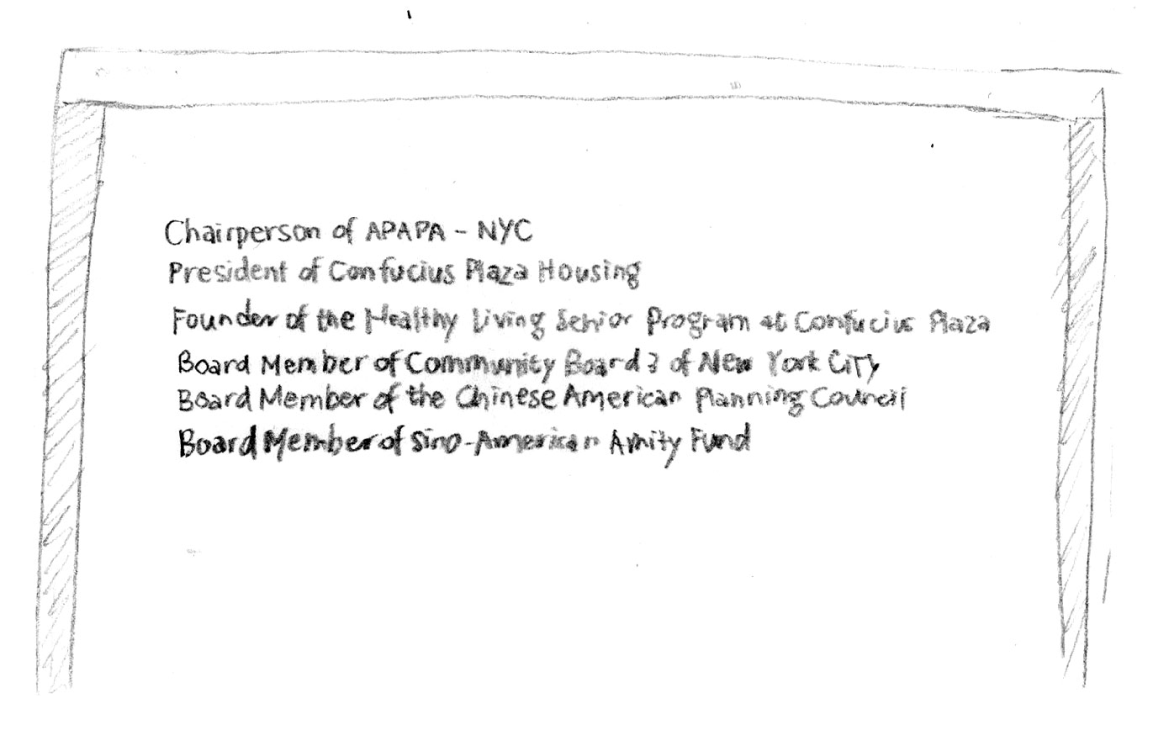 Chairperson of APAPA - NYC
President of Confucius Plaza Housing
Founder of the Healthy Living Senior Program at Confucius Plaza
Board Member of Community Board 3 of New York City
Board Member of the Chinese American Planning Council
Board Member of Sino-American Amity Fund